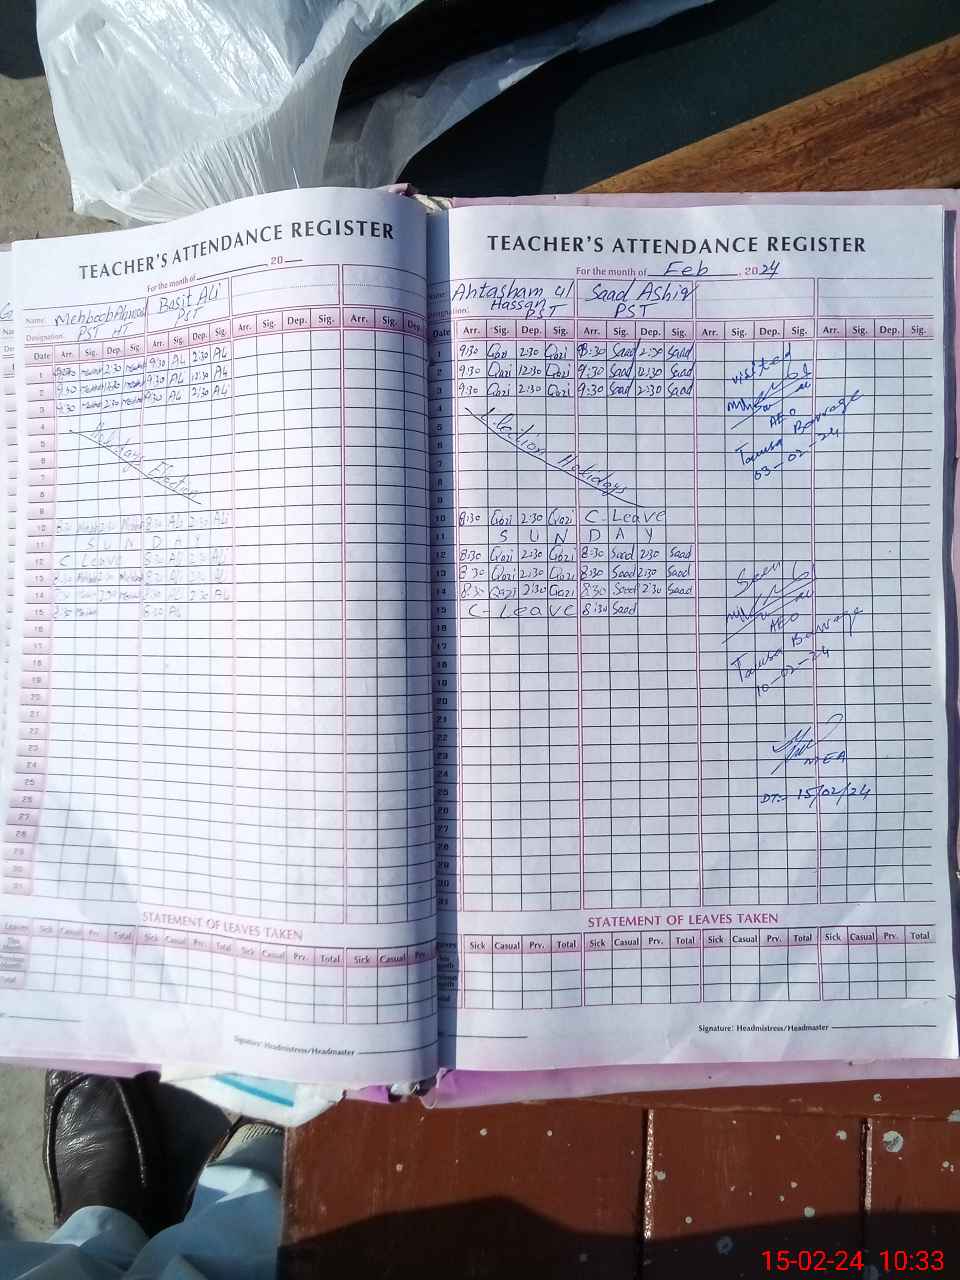 TEACHER'S ATTENDANCE REGISTER
For the month of 20
Name: Mehboob Ahmad Basit Ali
Designation: PST HT PST
Date Arr. Sig. Dep. Sig. Arr. Sig. Dep. Sig. Arr. Sig. Dep. Sig. Arr. Sig. Dep.
1 2:30 9:30 Ali 2:30 Ali
2 9:30 12:30 9:30 Ali 12:30 Ali
3 9:30 2:30 9:30 Ali 2:30 Ali
4
5 Holidays Election
6
7
8
9
10 8:30 2:30 8:30 Ali 2:30 Ali
11 S U N D A Y
12 C Leave 8:30 Ali 2:30 Ali
13 8:30 Ali 2:30 Ali
14 2:30 8:30 Ali 2:30 Ali
15 8:30 Ali
16
17
18
19
20
21
22
23
24
25
26
27
28
29
30
31
STATEMENT OF LEAVES TAKEN
Leaves Sick Casual Prv. Total Sick Casual Prv. Total Sick Casual Prv. Total Sick Casual Prv.
This Month
Previous Month
Total
Signature: Headmistress/Headmaster
TEACHER'S ATTENDANCE REGISTER
For the month of Feb , 2024
Name: Ahtasham ul Hassan Saad Ashiq
Designation: PST PST
Date Arr. Sig. Dep. Sig. Arr. Sig. Dep. Sig. Arr. Sig. Dep. Sig. Arr. Sig. Dep. Sig.
1 9:30 Qazi 2:30 Qazi 8:30 Saad 2:30 Saad
2 9:30 Qazi 12:30 Qazi 9:30 Saad 12:30 Saad
3 9:30 Qazi 2:30 Qazi 9:30 Saad 2:30 Saad
4
5 Election Holidays
6
7
8
9
10 8:30 Qazi 2:30 Qazi C-Leave
11 S U N D A Y
12 8:30 Qazi 2:30 Qazi 8:30 Saad 2:30 Saad
13 8:30 Qazi 2:30 Qazi 8:30 Saad 2:30 Saad
14 8:30 Qazi 2:30 Qazi 8:30 Saad 2:30 Saad
15 C-Leave 8:30 Saad
16
17
18
19
20
21
22
23
24
25
26
27
28
29
30
31
visited
AEO
Taunsa Barrage
03-02-24
Seen
AEO
Taunsa Barrage
10-02-24
MEA
DT:- 15/02/24
STATEMENT OF LEAVES TAKEN
Leaves Sick Casual Prv. Total Sick Casual Prv. Total Sick Casual Prv. Total Sick Casual Prv. Total
This Month
Previous Month
Total
Signature: Headmistress/Headmaster
15-02-24 10:33